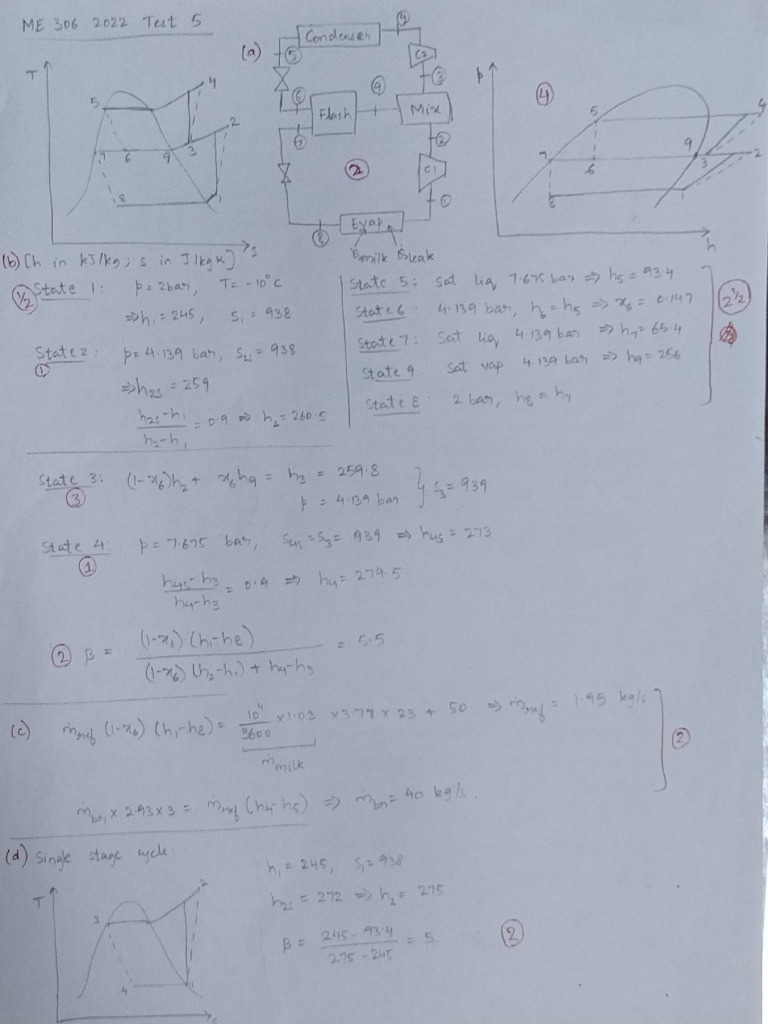 ME 306 2022 Test 5
(a)
Condenser
4
5
C2
3
T
4
5
2
7 6 9 3
8
s
6
Flash
9
Mix
7
2
2
C1
1
8
Evap
Q̇milk Q̇leak
p
4
5
4
7
9
3
2
6
8
1
h
(b) [h in kJ/kg; s in J/kgK]
1/2 State 1: p = 2bar, T = -10°C
⇒ h1 = 245, s1 = 938
State 2: p = 4.139 bar, s2s = 938
1
⇒ h2s = 259
(h2s-h1)/(h2-h1) = 0.9 ⇒ h2 = 260.5
State 5: sat liq 7.675 bar ⇒ h5 = 93.4
State 6: 4.139 bar, h6 = h5 ⇒ x6 = 0.147
State 7: Sat liq 4.139 bar ⇒ h7 = 65.4
State 9 Sat vap 4.139 bar ⇒ h9 = 256
State 8: 2 bar, h8 = h7
2 1/2
State 3: (1-x6)h2 + x6h9 = h3 = 259.8
3
p = 4.139 bar } s3 = 939
State 4: p = 7.675 bar, s4s = s3 = 939 ⇒ h4s = 273
1
(h4s-h3)/(h4-h3) = 0.9 ⇒ h4 = 274.5
2 β = (1-x6)(h1-h8)/((1-x6)(h2-h1) + h4-h3) = 5.5
(c) ṁref (1-x6)(h1-h8) = 10⁴/3600 × 1.03 × 3.77 × 23 + 50 ⇒ ṁref = 1.95 kg/s
ṁmilk
2
× 2.93 × 3 = ṁref (h4-h5) ⇒ = 40 kg/s.
(d) Single stage cycle:
T
2
3
4
s
h1 = 245, s1 = 938
h2s = 272 ⇒ h2 = 275
β = (245 - 93.4)/(275 - 245) = 5.
2